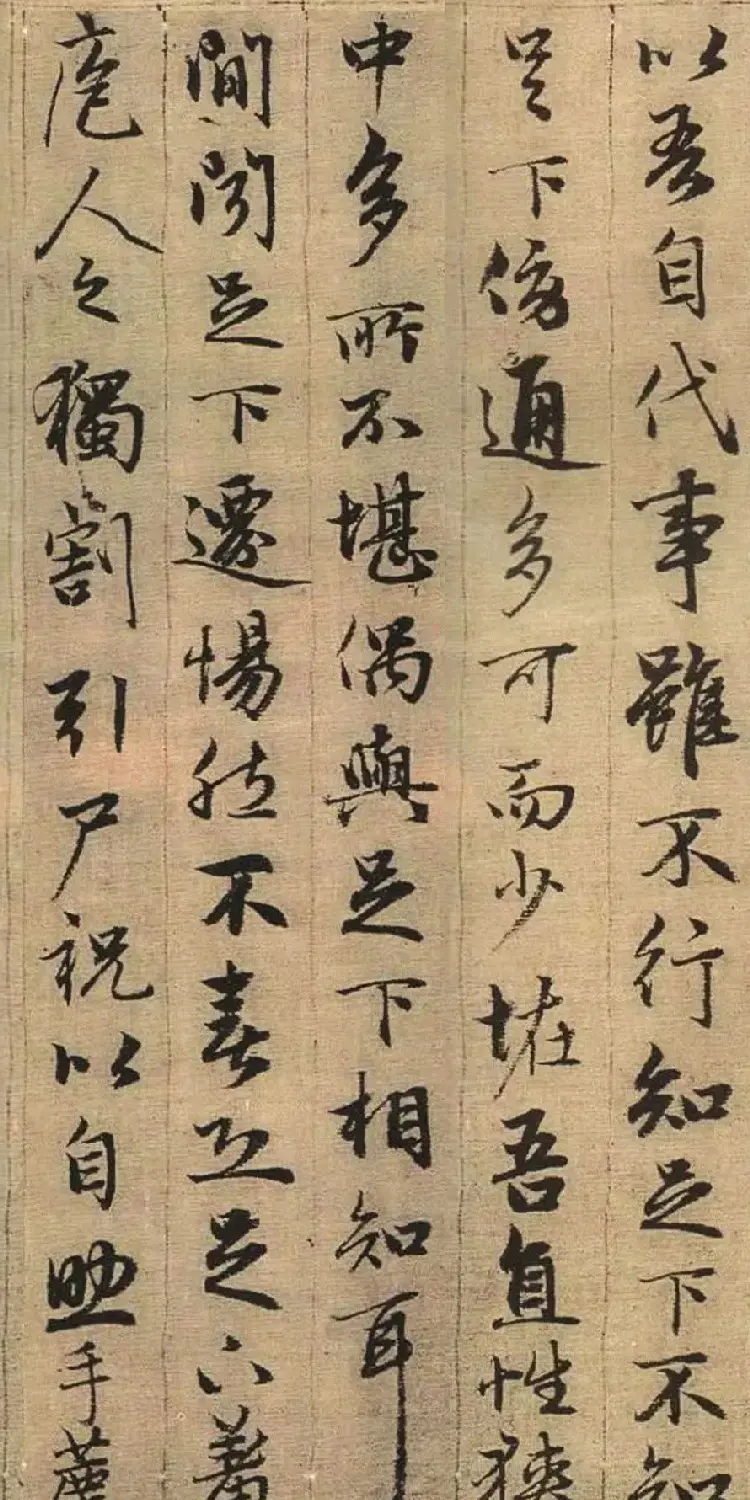 以吾自代事雖不行知足下不知
足下傍通多可而少恠吾直性狹
中多所不堪偶與足下相知耳
間聞足下遷惕然不喜恐足下羞
庖人之獨割引尸祝以自助手薦